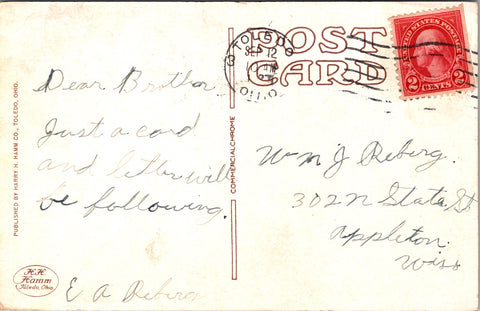 POST
CARD
TOLEDO
SEP 12
OHIO
UNITED STATES POSTAGE
2 CENTS 2
Dear Brother
Just a card
and letter will
be following.
E A Reberg
Wm J Reberg.
302 N State St
Appleton
Wis
COMMERCIALCHROME
PUBLISHED BY HARRY H. HAMM CO., TOLEDO, OHIO.
H.H.
Hamm
Toledo, Ohio